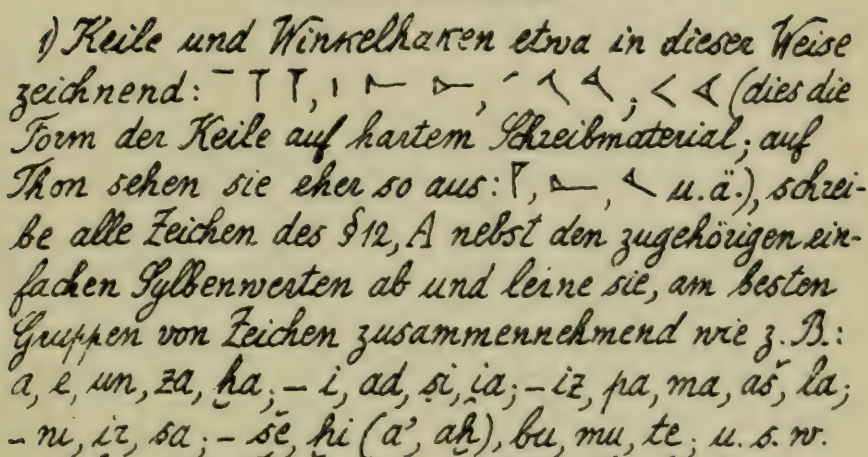 1) Keile und Winkelhaken etwa in dieser Weise
zeichnend: (dies die
Form der Keile auf hartem Schreibmaterial; auf
Thon sehen sie eher so aus: u. ä.), schrei-
be alle Zeichen des §12, A nebst den zugehörigen ein-
fachen Sylbenwerten ab und lerne sie, am besten
Gruppen von Zeichen zusammennehmend wie z. B.:
a, e, un, za, ḫa; – i, ad, ṣi, i̯a; – iz, pa, ma, aš, la;
– ni, ir, sa; – šĕ, ḫi (a’, aḫ), bu, mu, te; u. s. w.